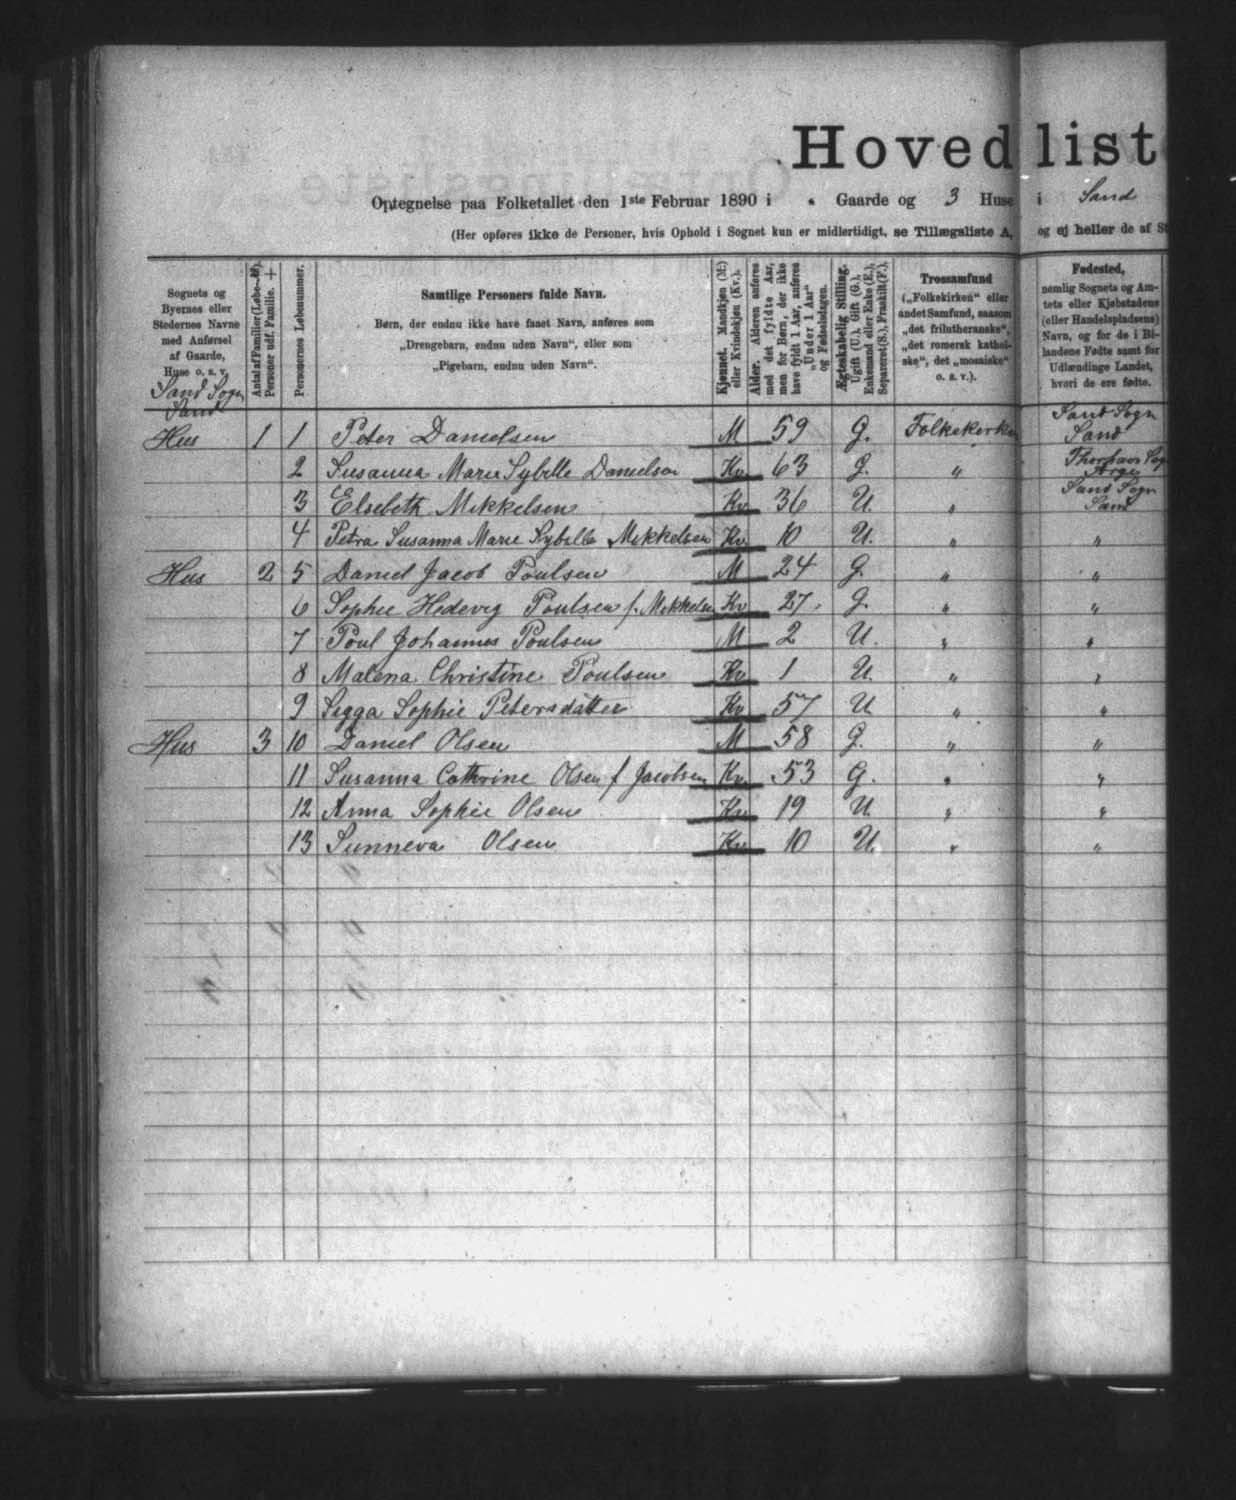 Hovedlist
Optegnelse paa Folketallet den 1ste Februar 1890 i " Gaarde og 3 Huse i Sand
(Her opføres ikke de Personer, hvis Ophold i Sognet kun er midlertidigt, se Tillægsliste A, og ej heller de af
Sognets og Byernes eller Stedernes Navne med Anførsel af Gaarde, Huse o. s. v.
Antal af Familier (Løbe-№). Personer udf. Familie. +
Personernes Løbenummer.
Samtlige Personers fulde Navn.
Børn, der endnu ikke have faaet Navn, anføres som
„Drengebarn, endnu uden Navn“, eller som
„Pigebarn, endnu uden Navn“.
Kjønnet. Mandkjøn (M.) eller Kvindekjøn (Kv.).
Alder. Alderen anføres med det fyldte Aar, men for Børn, der ikke have fyldt 1 Aar, anføres „Under 1 Aar“ og Fødselsdagen.
Ægteskabelig Stilling. Ugift (U.), Gift (G.), Enkemand eller Enke (E.), Separeret (S.), Fraskilt (F.).
Trossamfund
(„Folkekirken“ eller andet Samfund, saasom „det frilutheranske“, „det romersk katholske“, det „mosaiske“ o. s. v.).
Fødested,
nemlig Sognets og Amtets eller Kjøbstadens (eller Handelspladsens) Navn, og for de i Bilandene Fødte samt for Udlændinge Landet, hvori de ere fødte.
Sand Sogn
Sand
Hus 1 1 Peter Danielsen M 59 G. Folkekirken Sand Sogn Sand
2 Susanna Marie Sybille Danielsen Kv 63 G. " Thorshavn Sogn Arge
3 Elsebeth Mikkelsen Kv 36 U. " Sand Sogn Sand
4 Petra Susanna Marie Sybille Mikkelsen Kv 10 U. " "
Hus 2 5 Daniel Jacob Poulsen M 24 G. " "
6 Sophie Hedevig Poulsen f. Mikkelsen Kv 27 G. " "
7 Poul Johannes Poulsen M 2 U. " "
8 Malena Christine Poulsen Kv 1 U. " "
9 Sigga Sophie Petersdatter Kv 57 U " "
Hus 3 10 Daniel Olsen M 58 G. " "
11 Susanna Cathrine Olsen f Jacobsen Kv 53 G. " "
12 Anna Sophie Olsen Kv 19 U " "
13 Sunneva Olsen Kv 10 U. " "